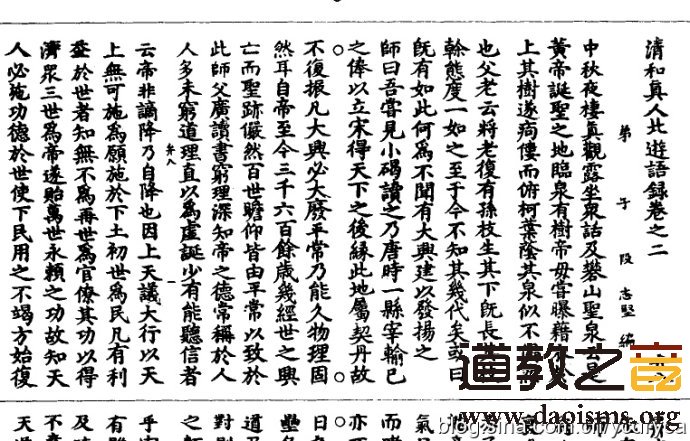 清和真人北遊語錄卷之二
弟子段志堅編
中秋夜棲真觀露坐眾話及礬山聖泉云是
黃帝誕聖之地臨泉有樹帝毋嘗曝藉
上其樹遂痀僂而俯柯葉蔭其泉似不
也父老云將老復有孫枝生其下旣長
榦態度一如之至于今不知其幾代矣或曰
旣有如此何為不聞有大興建以發揚之
師曰吾嘗見小碣讀之乃唐時一縣宰輸己
之俸以立宋得天下之後緣此地屬契丹故
不復振凡大興必大廢平常乃能久物理固
然耳自帝至今三千六百餘歲幾經世之興
亡而聖跡儼然百世瞻仰皆由平常以致於
此師父廣讀書窮理深知帝之德常稱於人
人多未窮道理直以為虛誕少有能聽信者
弁八 一
云帝非謫降乃自降也因上天議大行以天
上無可施為願施於下土初世為民凡有利
益於世者知無不為再世為官僚其功以得
濟眾三世為帝遂貽萬世永賴之功故知天
人必施功德於世使下民用之不竭方始復
道教之音
www.daoisms.org